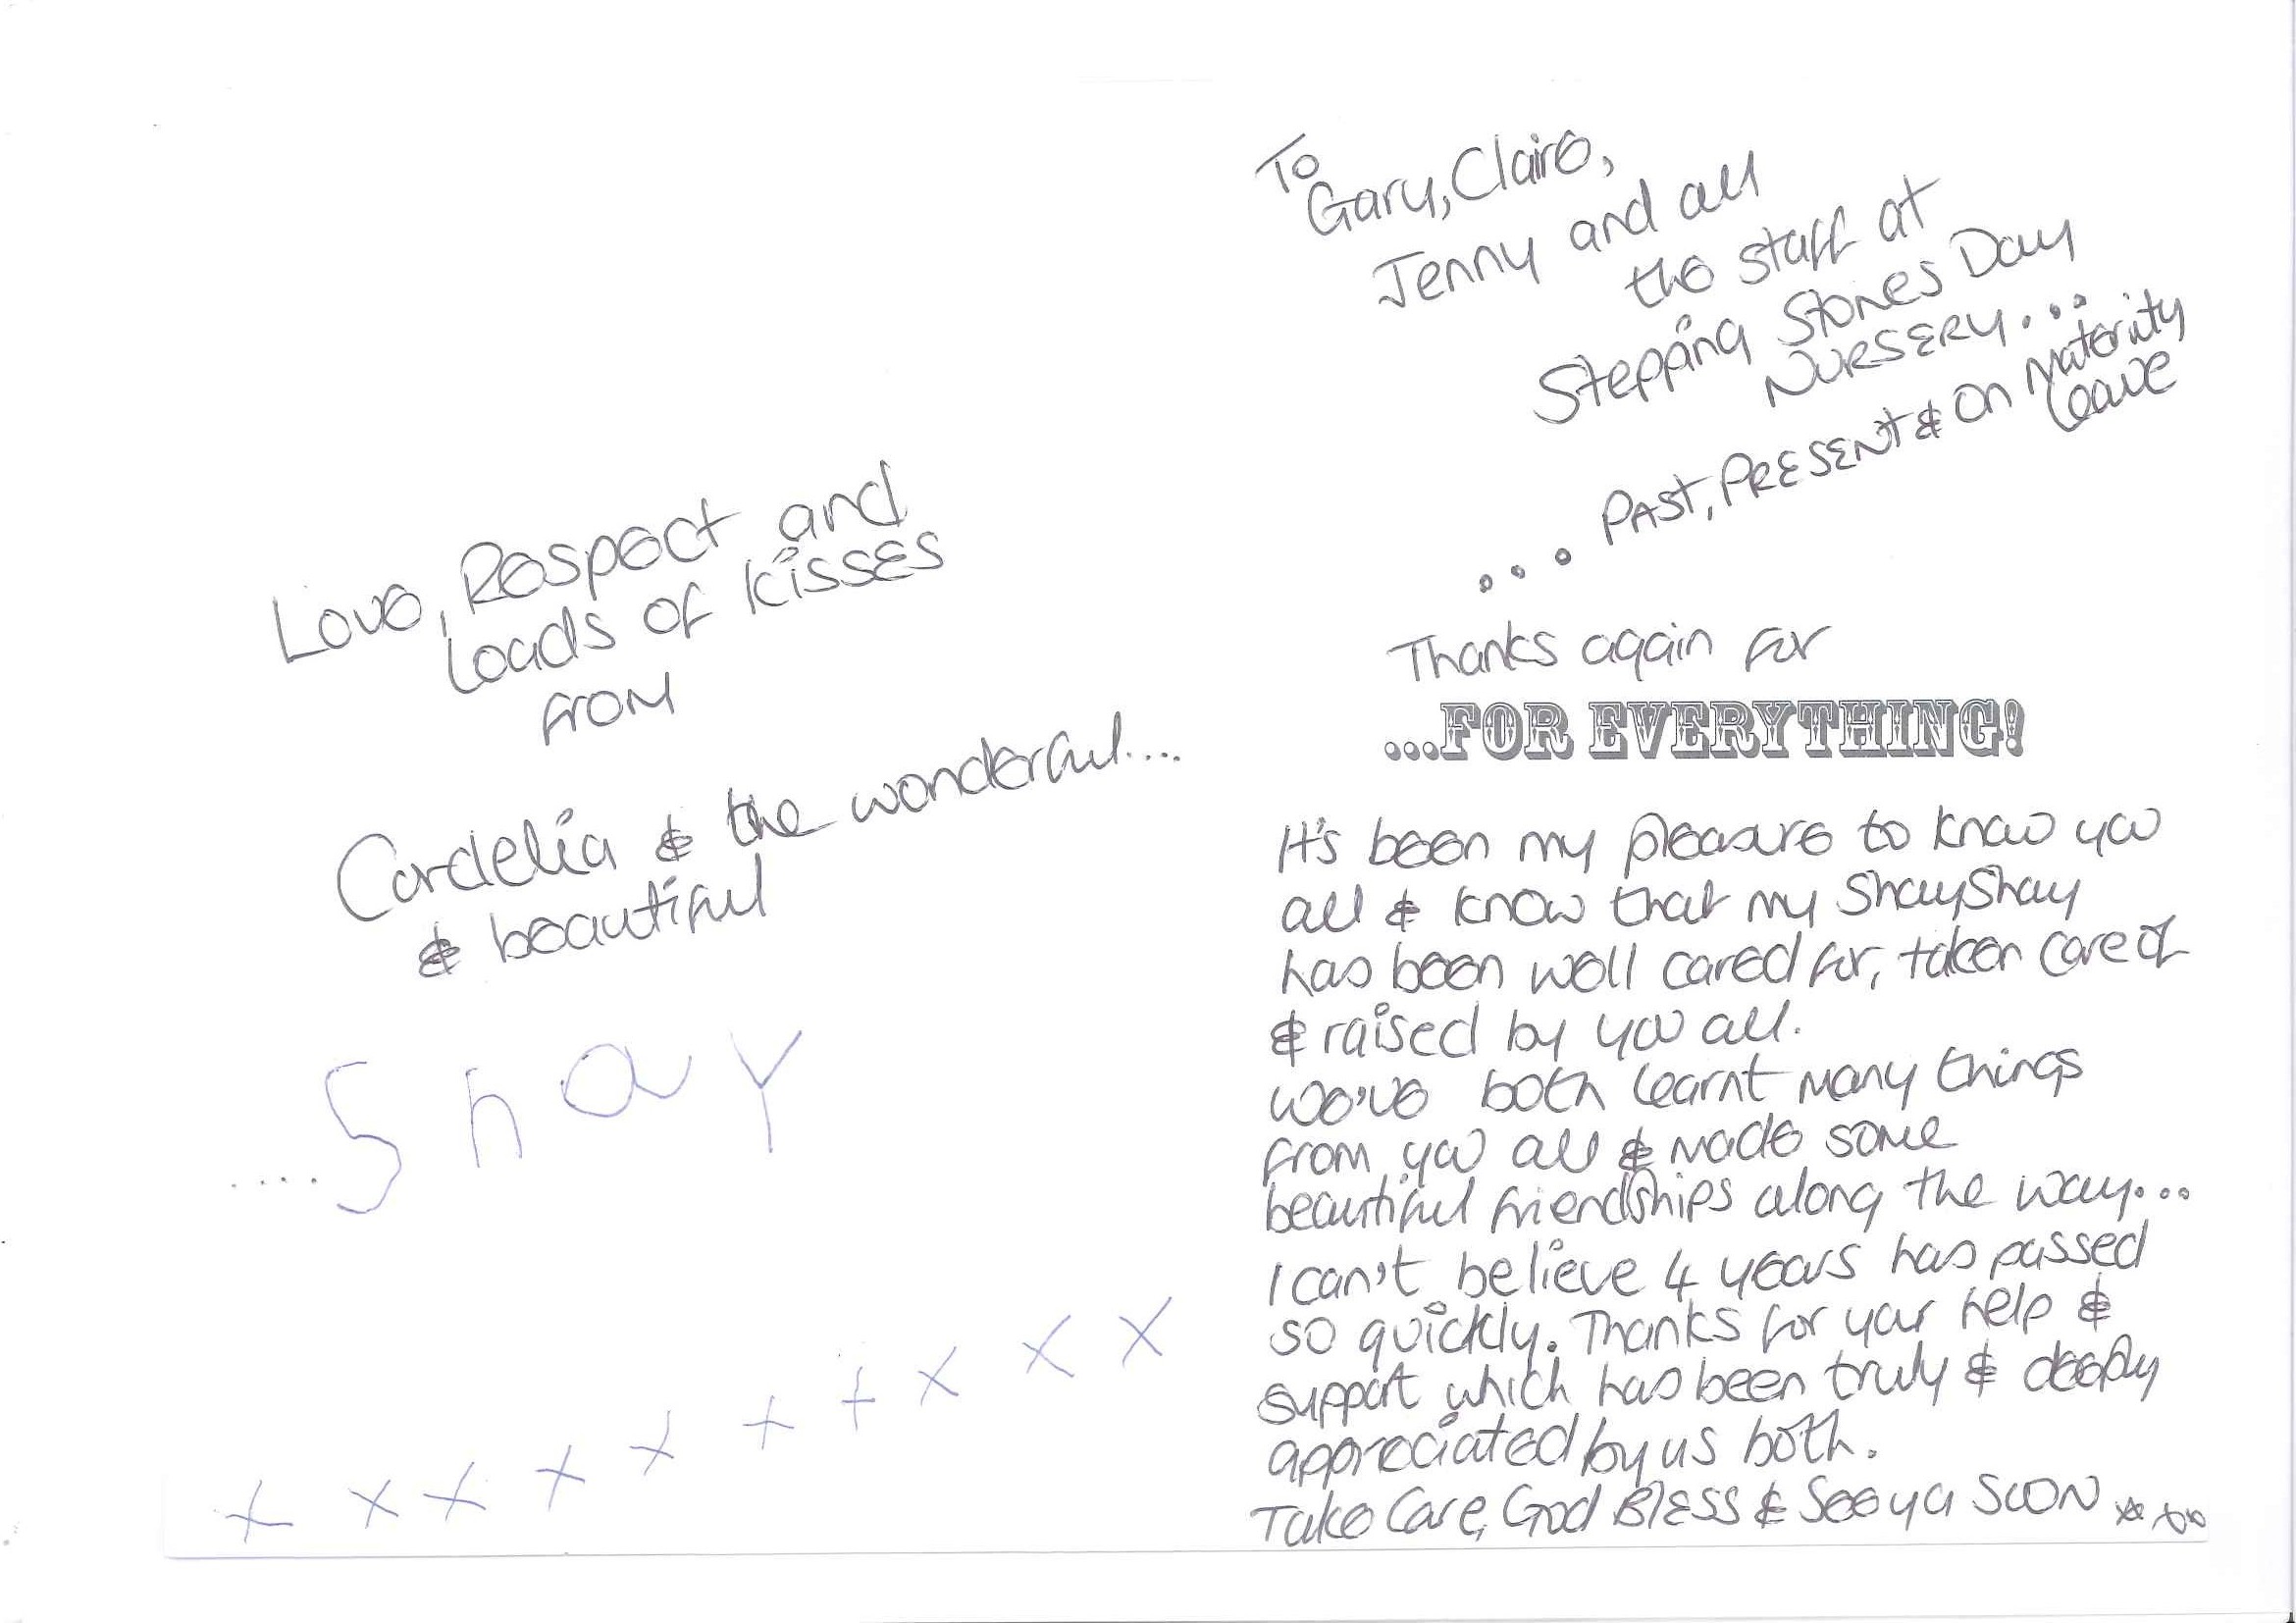 To
Gary, Claire,
Jenny and all
the staff at
Stepping Stones Day
NURSERY...
... PAST, PRESENT & On Maternity
Leave
Thanks again for
...FOR EVERYTHING!
It's been my pleasure to know you
all & know that my ShayShay
has been well cared for, taken care of
& raised by you all.
We've both learnt many things
from you all & made some
beautiful friendships along the way...
I can't believe 4 years has passed
so quickly. Thanks for your help &
support which has been truly & deeply
appreciated by us both.
Take Care, God BLESS & See ya SOON
Love, Respect and
Loads of KISSES
from
Cordelia & the wonderful....
& beautiful
....Shay
x x x x x x x x x x